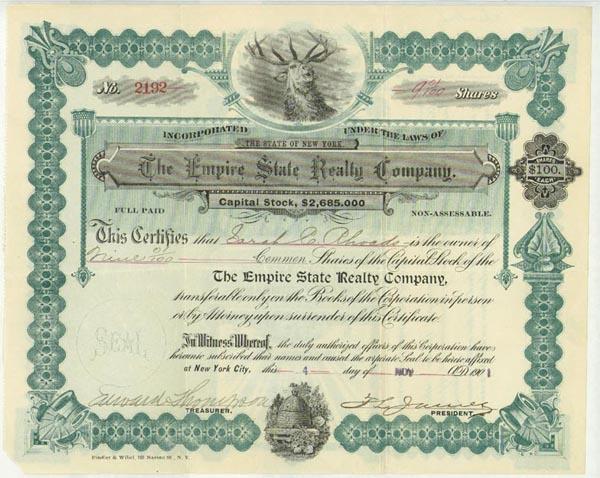 No. 2192 Shares
INCORPORATED UNDER THE LAWS OF
THE STATE OF NEW YORK.
The Empire State Realty Company.
Capital Stock, $2,685.000
SHARES
$100.
EACH
FULL PAID NON-ASSESSABLE.
This Certifies that Sarah E. Rhoads is the owner of
Common Shares of the Capital Stock of the
The Empire State Realty Company,
transferable only on the Books of the Corporation in person
or by Attorney upon surrender of this Certificate.
SEAL
In Witness Whereof, the duly authorized officers of this Corporation have
hereunto subscribed their names and caused the corporate Seal to be hereto affixed
at New York City, this 4 day of NOV A.D. 1901
Edward
TREASURER.
PRESIDENT.